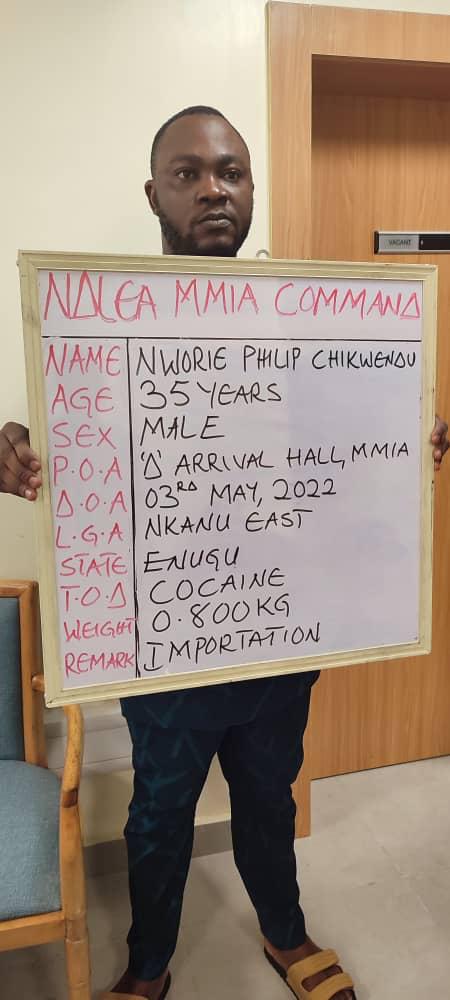 NDLEA MMIA COMMAND
NAME NWORIE PHILIP CHIKWENDU
AGE 35 YEARS
SEX MALE
P.O.A 'D' ARRIVAL HALL, MMIA
D.O.A 03RD MAY, 2022
L.G.A NKANU EAST
STATE ENUGU
T.O.D COCAINE
WEIGHT 0.800KG
REMARK IMPORTATION
VACANT